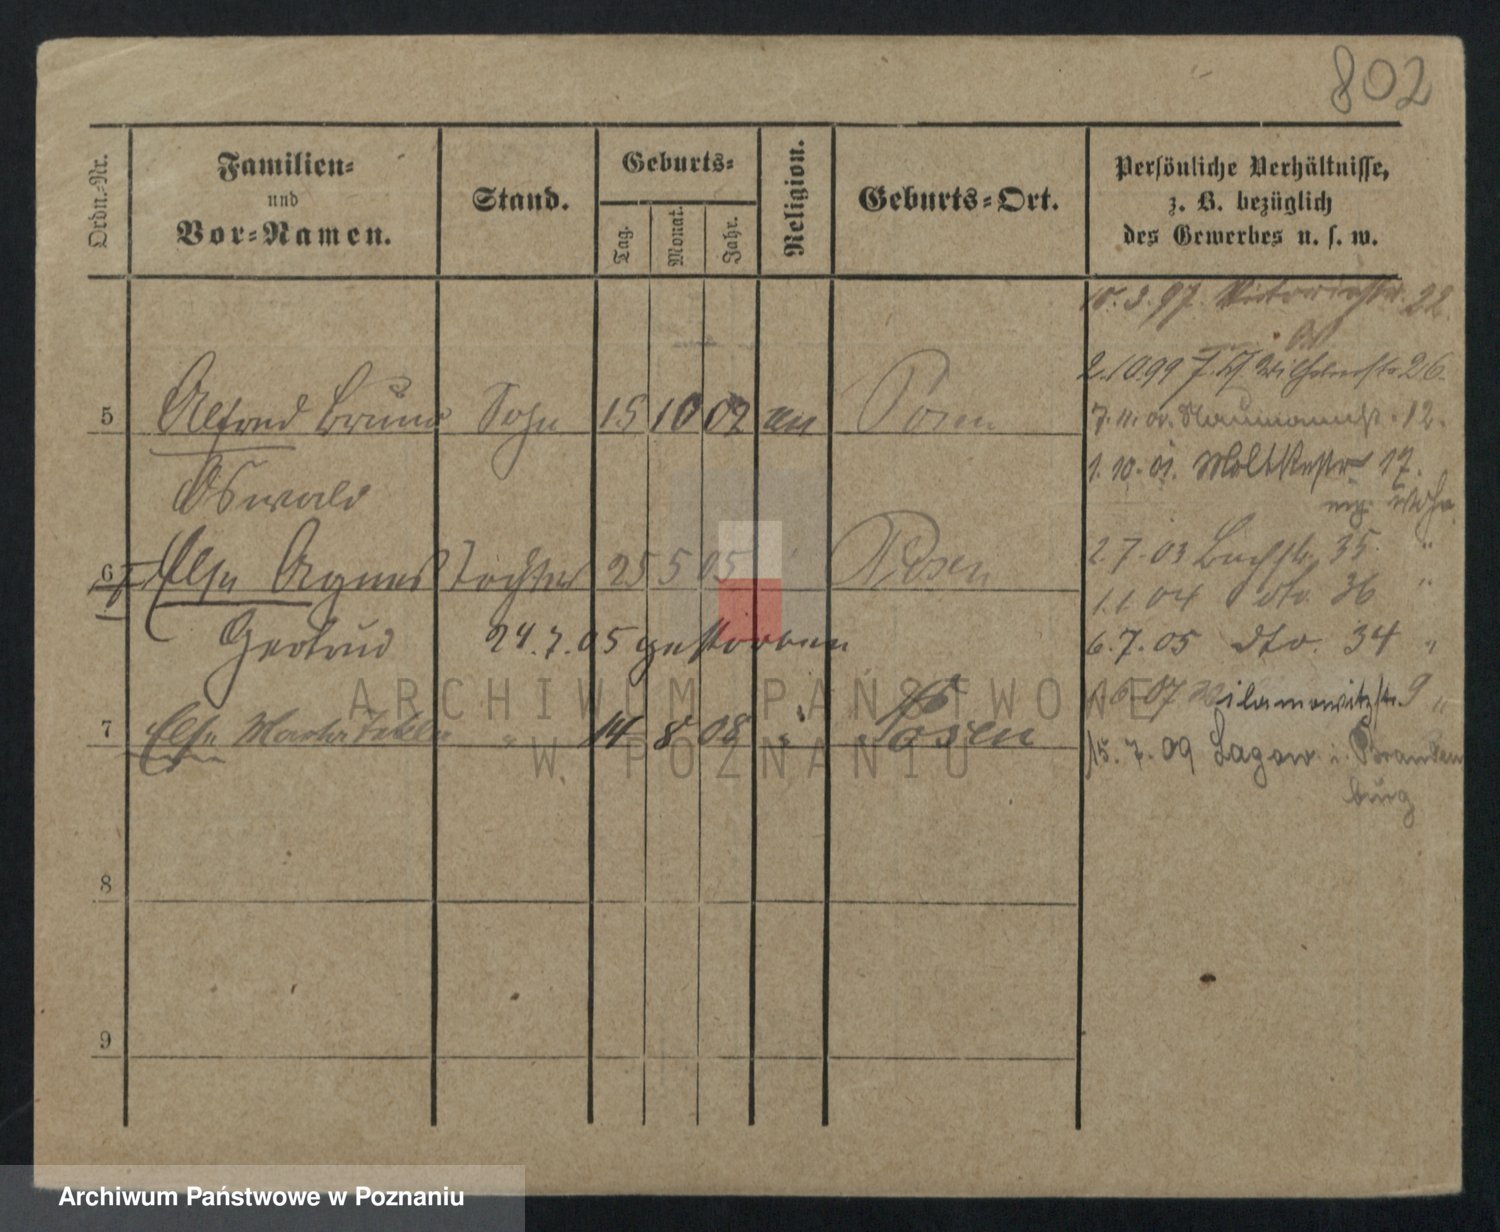 802
Ordn.-Nr.
Familien-
und
Vor-Namen.
Stand.
Geburts-
Tag.
Monat.
Jahr.
Religion.
Geburts-Ort.
Persönliche Verhältnisse,
z. B. bezüglich
des Gewerbes u. s. w.
15.3.97. Victoriastr. 22.
2.10.99 Wilhelmstr. 26.
5 Alfred Bruno Sohn 15 10 02 Posen
Oswald
7.11.00. Naumannstr. 12.
1.10.01. Moltkestr 17.
eig. Wohn.
6 Else Agnes Tochter 25 5 05 Posen
Gertrud 24.7.05 gestorben
2.7.03 Buchstr. 35. "
1.1.04 dto. 36 "
6.7.05 dto. 34 "
7 Else Martha Tekla " 14 8 08 " Posen
07 Wilamowitzstr. 9 "
15.7.09 Lagow i. Branden
burg
8
9
ARCHIWUM PAŃSTWOWE
W POZNANIU
Archiwum Państwowe w Poznaniu